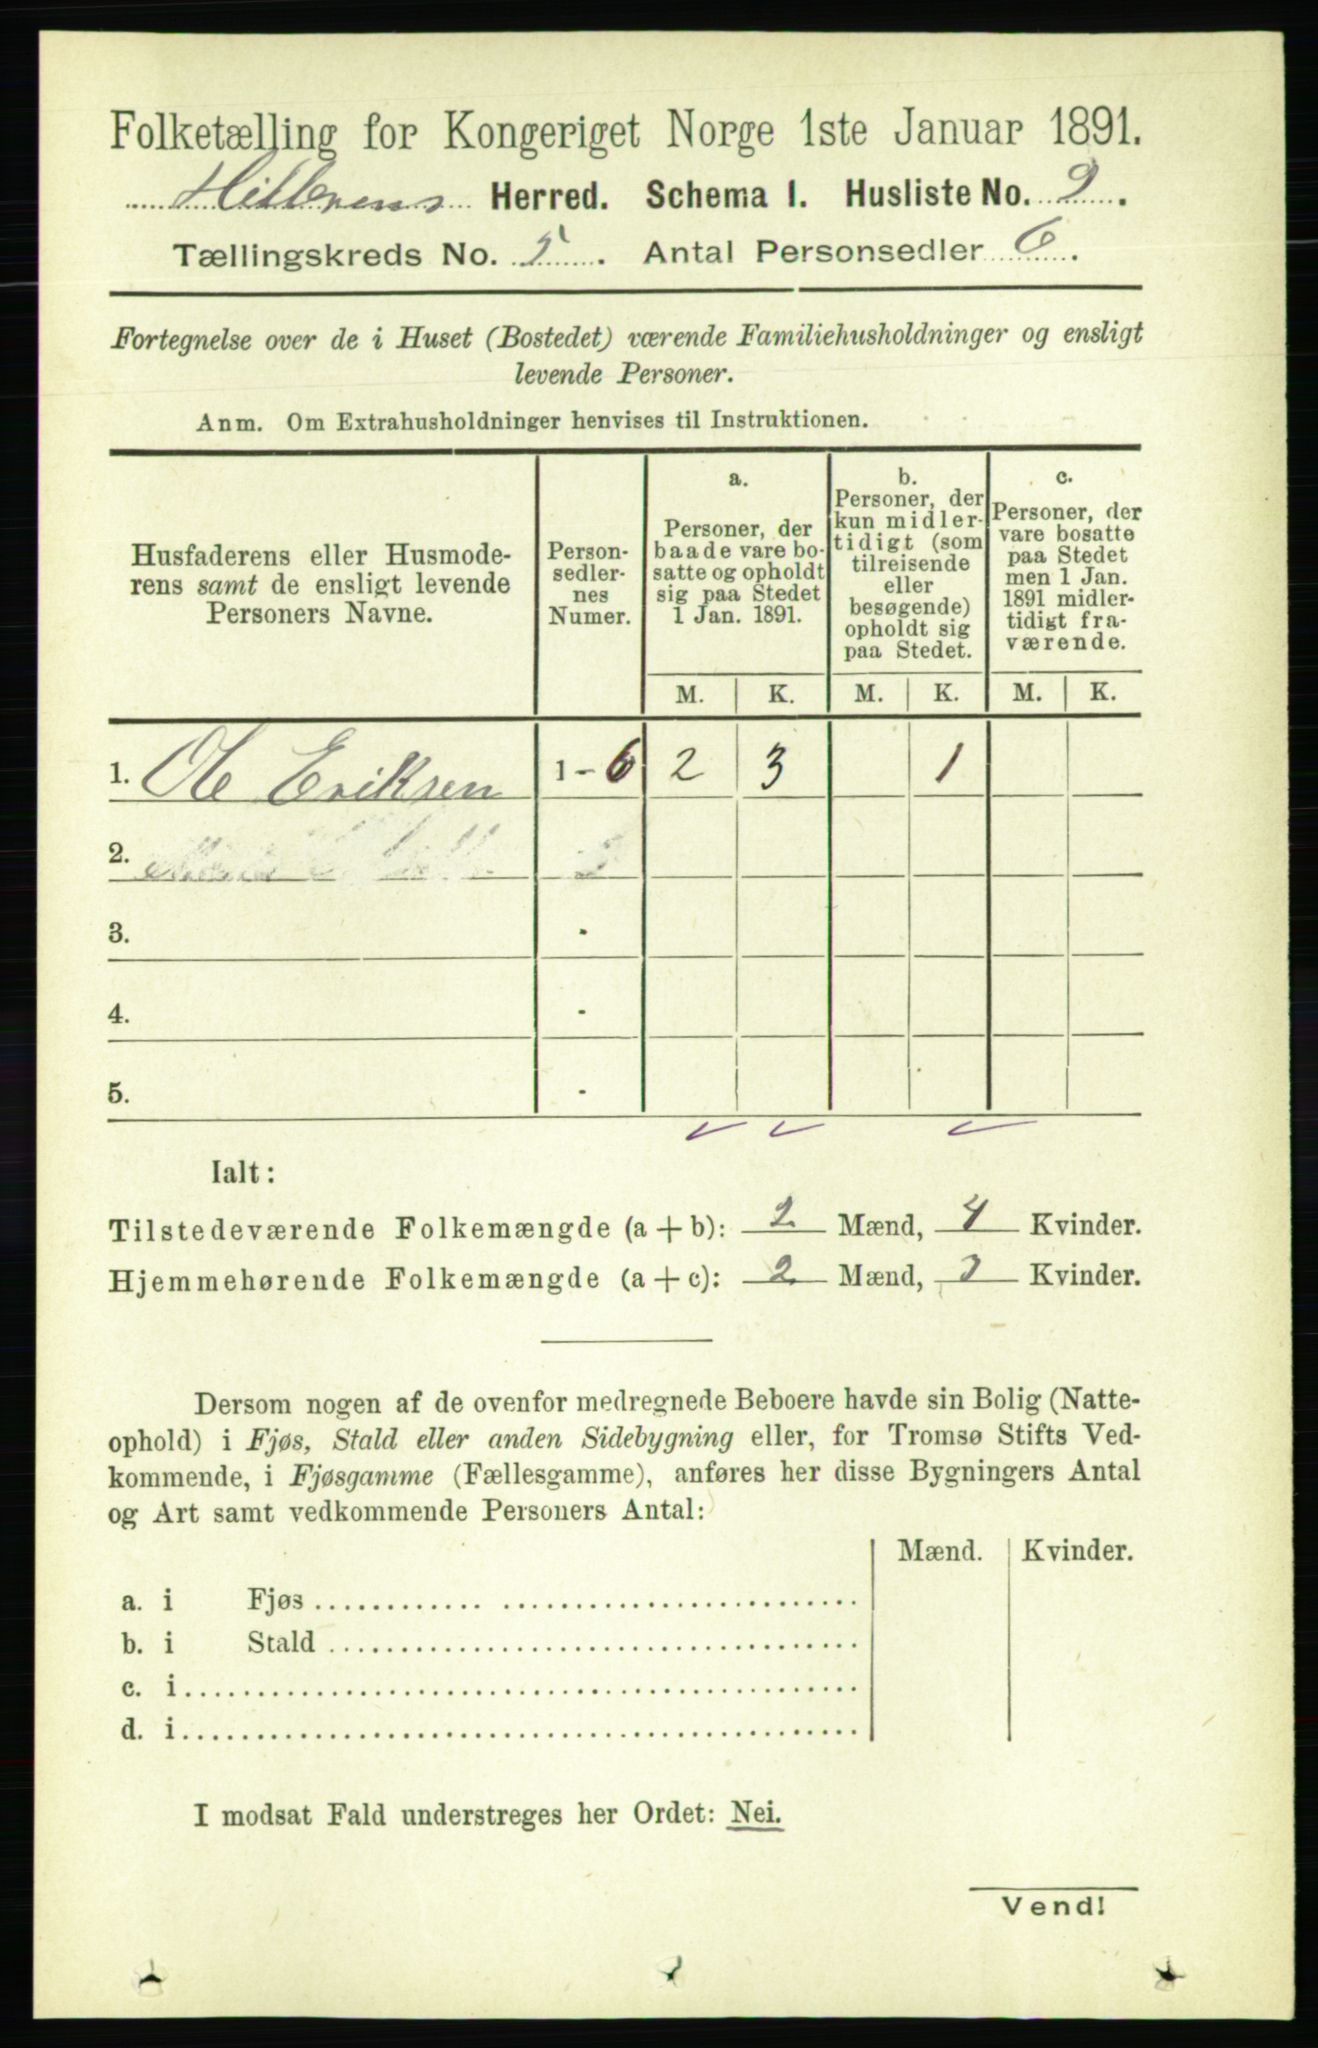 Folketælling for Kongeriget Norge 1ste Januar 1891.
Hitterens Herred. Schema I. Husliste No. 2.
Tællingskreds No. 5. Antal Personsedler 6.
Fortegnelse over de i Huset (Bostedet) værende Familiehusholdninger og ensligt
levende Personer.
Anm. Om Extrahusholdninger henvises til Instruktionen.
Husfaderens eller Husmode-
rens samt de ensligt levende
Personers Navne.
Person-
sedler-
nes
Numer.
a.
Personer, der
baade vare bo-
satte og opholdt
sig paa Stedet
1 Jan. 1891.
b.
Personer, der
kun midler-
tidigt (som
tilreisende
eller
besøgende)
opholdt sig
paa Stedet.
c.
Personer, der
vare bosatte
paa Stedet
men 1 Jan.
1891 midler-
tidigt fra-
værende.
M. K. M. K. M. K.
1. Ole Eriksen 1 - 6 2 3 1
2.
3. -
4. -
5. -
Ialt:
Tilstedeværende Folkemængde (a + b): 2 Mænd, 4 Kvinder.
Hjemmehørende Folkemængde (a + c): 2 Mænd, 3 Kvinder.
Dersom nogen af de ovenfor medregnede Beboere havde sin Bolig (Natte-
ophold) i Fjøs, Stald eller anden Sidebygning eller, for Tromsø Stifts Ved-
kommende, i Fjøsgamme (Fællesgamme), anføres her disse Bygningers Antal
og Art samt vedkommende Personers Antal:
Mænd. Kvinder.
a. i Fjøs
b. i Stald
c. i
d. i
I modsat Fald understreges her Ordet: Nei.
Vend!